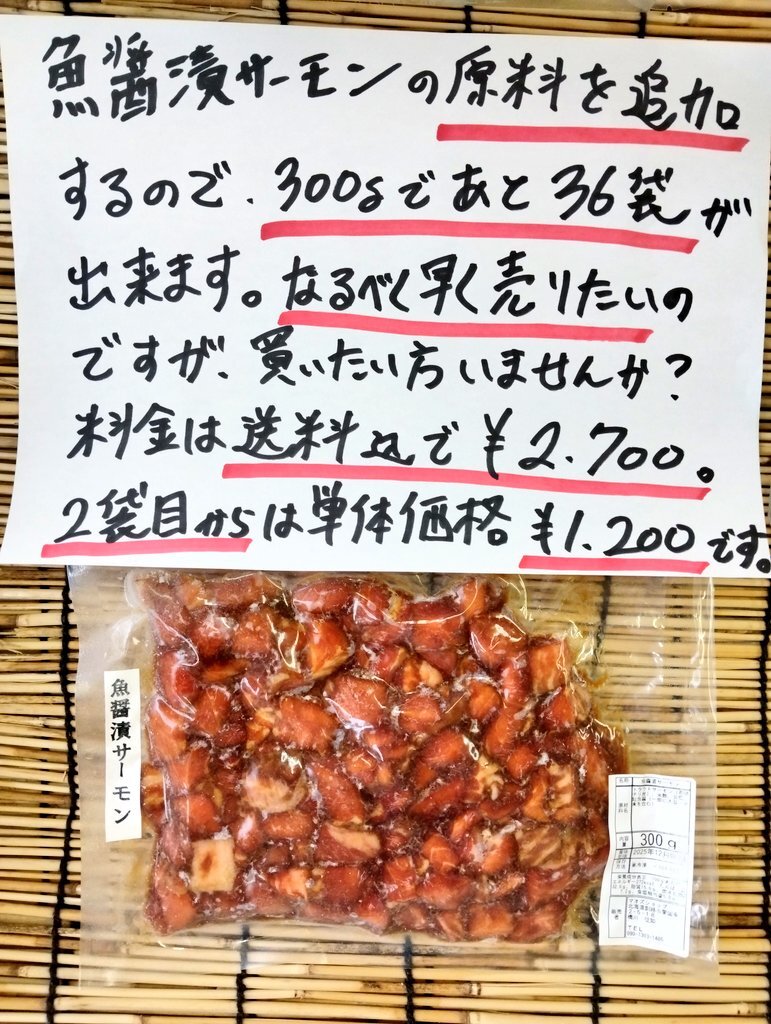 魚醤漬サーモンの原料を追加
するので、300gであと36袋が
出来ます。なるべく早く売りたいの
ですが、買いたい方いませんか?
料金は送料込で¥2.700。
2袋目からは単体価格¥1.200です。
魚醤漬サーモン
名称
原材料名
内容量 300g
販売者
TEL